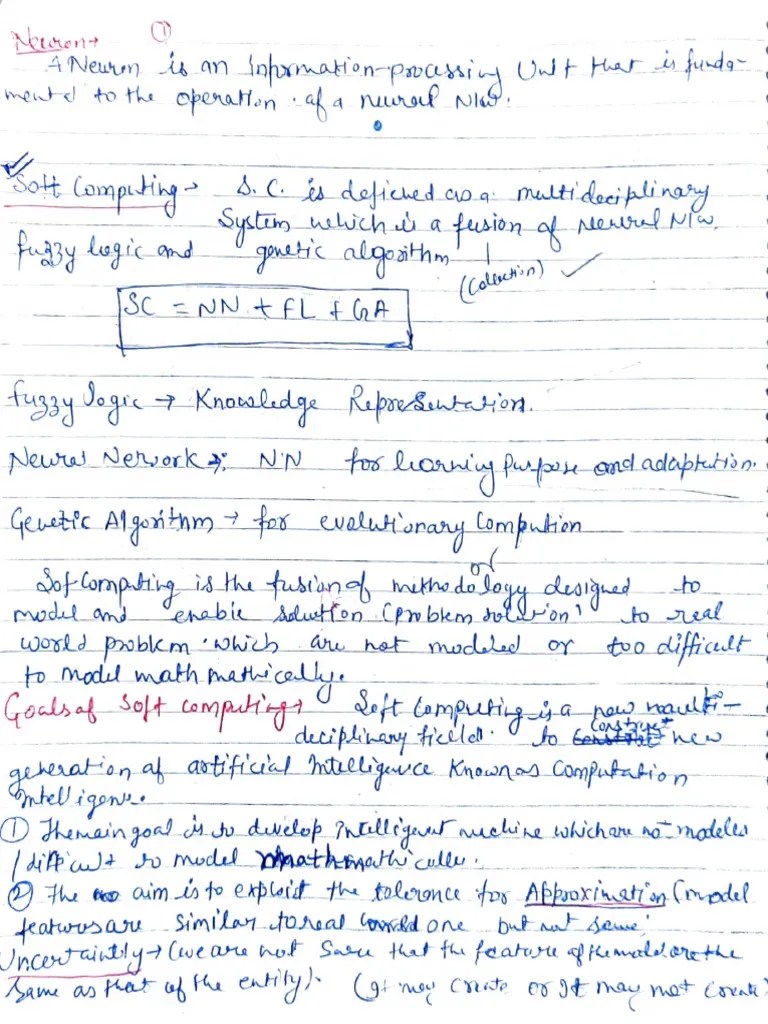 Neuron→ ①
A Neuron is an Information-processing Unit that is funda-
mental to the operation of a neural N/w.
Soft Computing → S.C. is defiened as a multideciplinary
System which is a fusion of Neural N/w,
fuzzy logic and genetic algorithm
(Collection) ✓
SC = NN + FL + GA
fuzzy logic → Knowledge Representation.
Neural Nerwork →: NN for learning purpose and adaptation.
Genetic Algorithm → for evolutionary Compution
or
Sof Computing is the fusion of methodology designed to
model and enable solution (problem solution) to real
world problem which are not modeled or too difficult
to model math mathically.
Goals of Soft computing → Soft Computing is a new multi-
deciplinary ficeld. to construct new
generation of artificial Intelligence Known as Computation
Intelligence.
① The main goal is to develop intelligent machine which are not modeled
/ difficult to model mathmathically.
② The aim is to exploit the tolerence for Approximation (model
features are similar to real world one but not same)
Uncertaintly → (we are not Sure that the feature of the model are the
same as that of the entity). (It may Create or It may not Create)